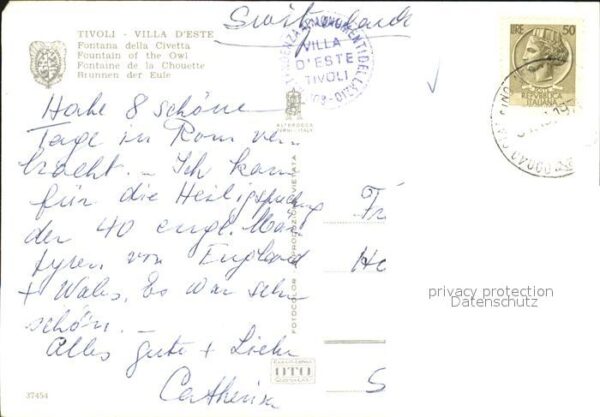 Switzerlande
TIVOLI - VILLA D'ESTE
Fontana della Civetta
Fountain of the Owl
Fontaine de la Chouette
Brunnen der Eule
VILLA
D'ESTE
TIVOLI
LIRE 50
REPUBBLICA
ITALIANA
Habe 8 schöne
Tage in Rom ver
bracht. — Ich kam
für die Heiligsprechung
der 40 engl. Mär
tyrer von England
+ Wales. Es war sehr
schön. —
Alles gute + Liebe
Catherina
Fr
He
S
privacy protection
Datenschutz
FOTOCOLOR RIPRODUZIONE VIETATA
OTO
37454